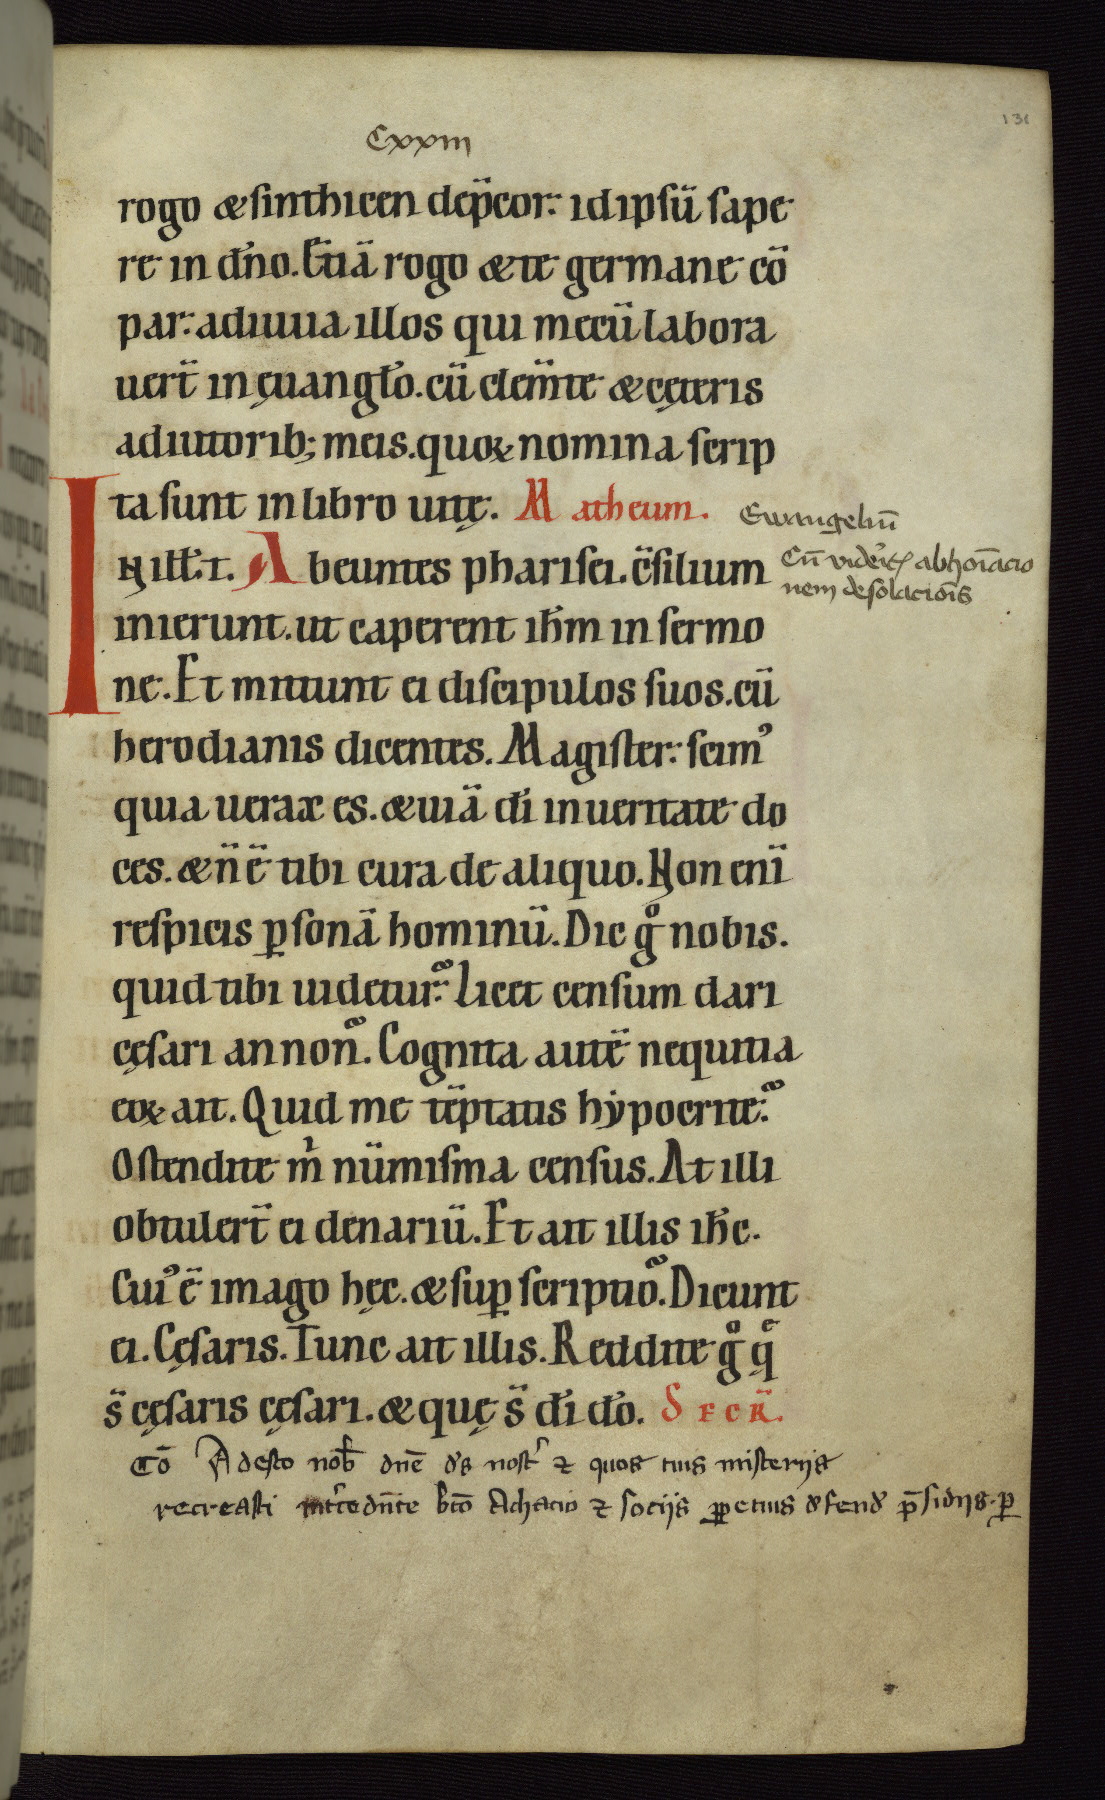 Cxxiii
131
rogo &sinthicen dep̄cor: idipsū sape
re in dn̄o. Etiā rogo &te germane cō
par: adiuua illos qui mecū labora
uert̄ in ęuangl̄o. cū clem̄te & cęteris
adiutorib; meis. quoꝝ nomina scrip
ta sunt in libro uitę. Matheum.
Ewangeliū
IN ILL̄. T. Abeuntes pharisei. c̄silium
Cū vider̄itꝭ abhoīacio
nem desolacioīs
inierunt. ut caperent ih̄m in sermo
ne. Et mittunt ei discipulos suos. cū
herodianis dicentes. Magister: scimꝰ
quia uerax es. &uiā dī in ueritate do
ces. & n̄ ē tibi cura de aliquo. Non enī
respicis ꝑsonā hominū. Dic gͦ nobis.
quid tibi uidetur: Licet censum dari
cęsari an non. Cognita autē nequitia
eoꝝ ait. Quid me tēptatis hẏpocrite:
Ostendite m̄ nūmisma census. At illi
obtulert̄ ei denariū. Et ait illis ih̄c.
Cuiꝰ ē imago hęc. & suꝑ scriptio. Dicunt
ei. Cęsaris. Tunc ait illis. Reddite gͦ qͤ
s̄ cęsaris cęsari. & quę s̄ dī dō. SECR̄.
Cō Adesto nob̄ dn̄e ds̄ nost̄ ⁊ quos tuis misterijs
recreasti intr̄cedn̄te b̄to Achacio ⁊ socijs ꝑpetuis defend̄ p̄sidijs. ꝑ